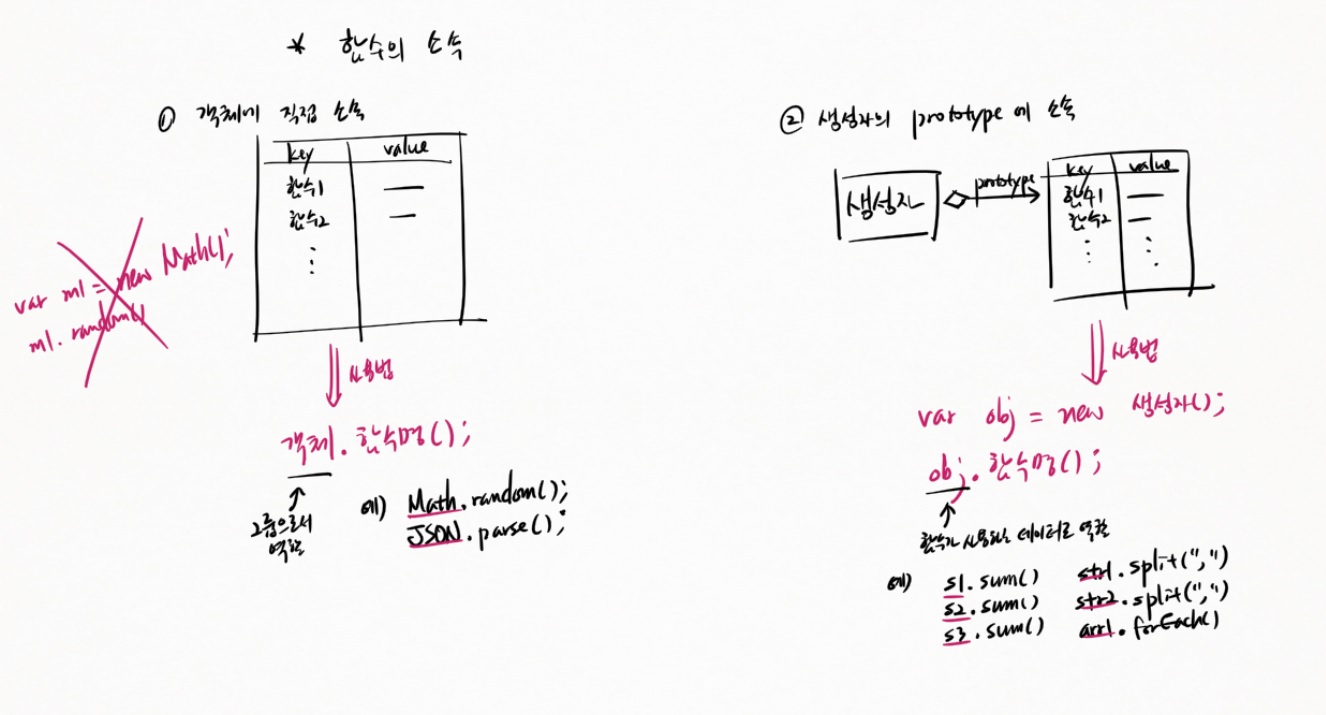 * 함수의 소속
① 객체에 직접 소속
key value
함수1
함수2
var m1 = new Math();
m1.random()
사용법
객체.함수명();
그룹으로서
역할
예) Math.random();
JSON.parse();
② 생성자의 prototype에 소속
생성자
prototype
key value
함수1
함수2
사용법
var obj = new 생성자();
obj.함수명();
함수가 사용하는 데이터로 역할
예) s1.sum() str1.split(",")
s2.sum() str2.split(",")
s3.sum() arr1.forEach()